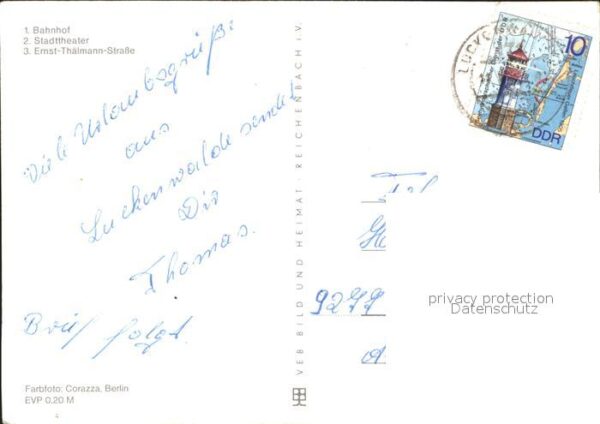 1. Bahnhof
2. Stadttheater
3. Ernst-Thälmann-Straße
Viele Urlaubsgrüße
aus
Luckenwalde sendet
Dir
Thomas.
Brief folgt.
Farbfoto: Corazza, Berlin
EVP 0,20 M
VEB BILD UND HEIMAT · REICHENBACH I. V.
10
DDR
privacy protection
Datenschutz